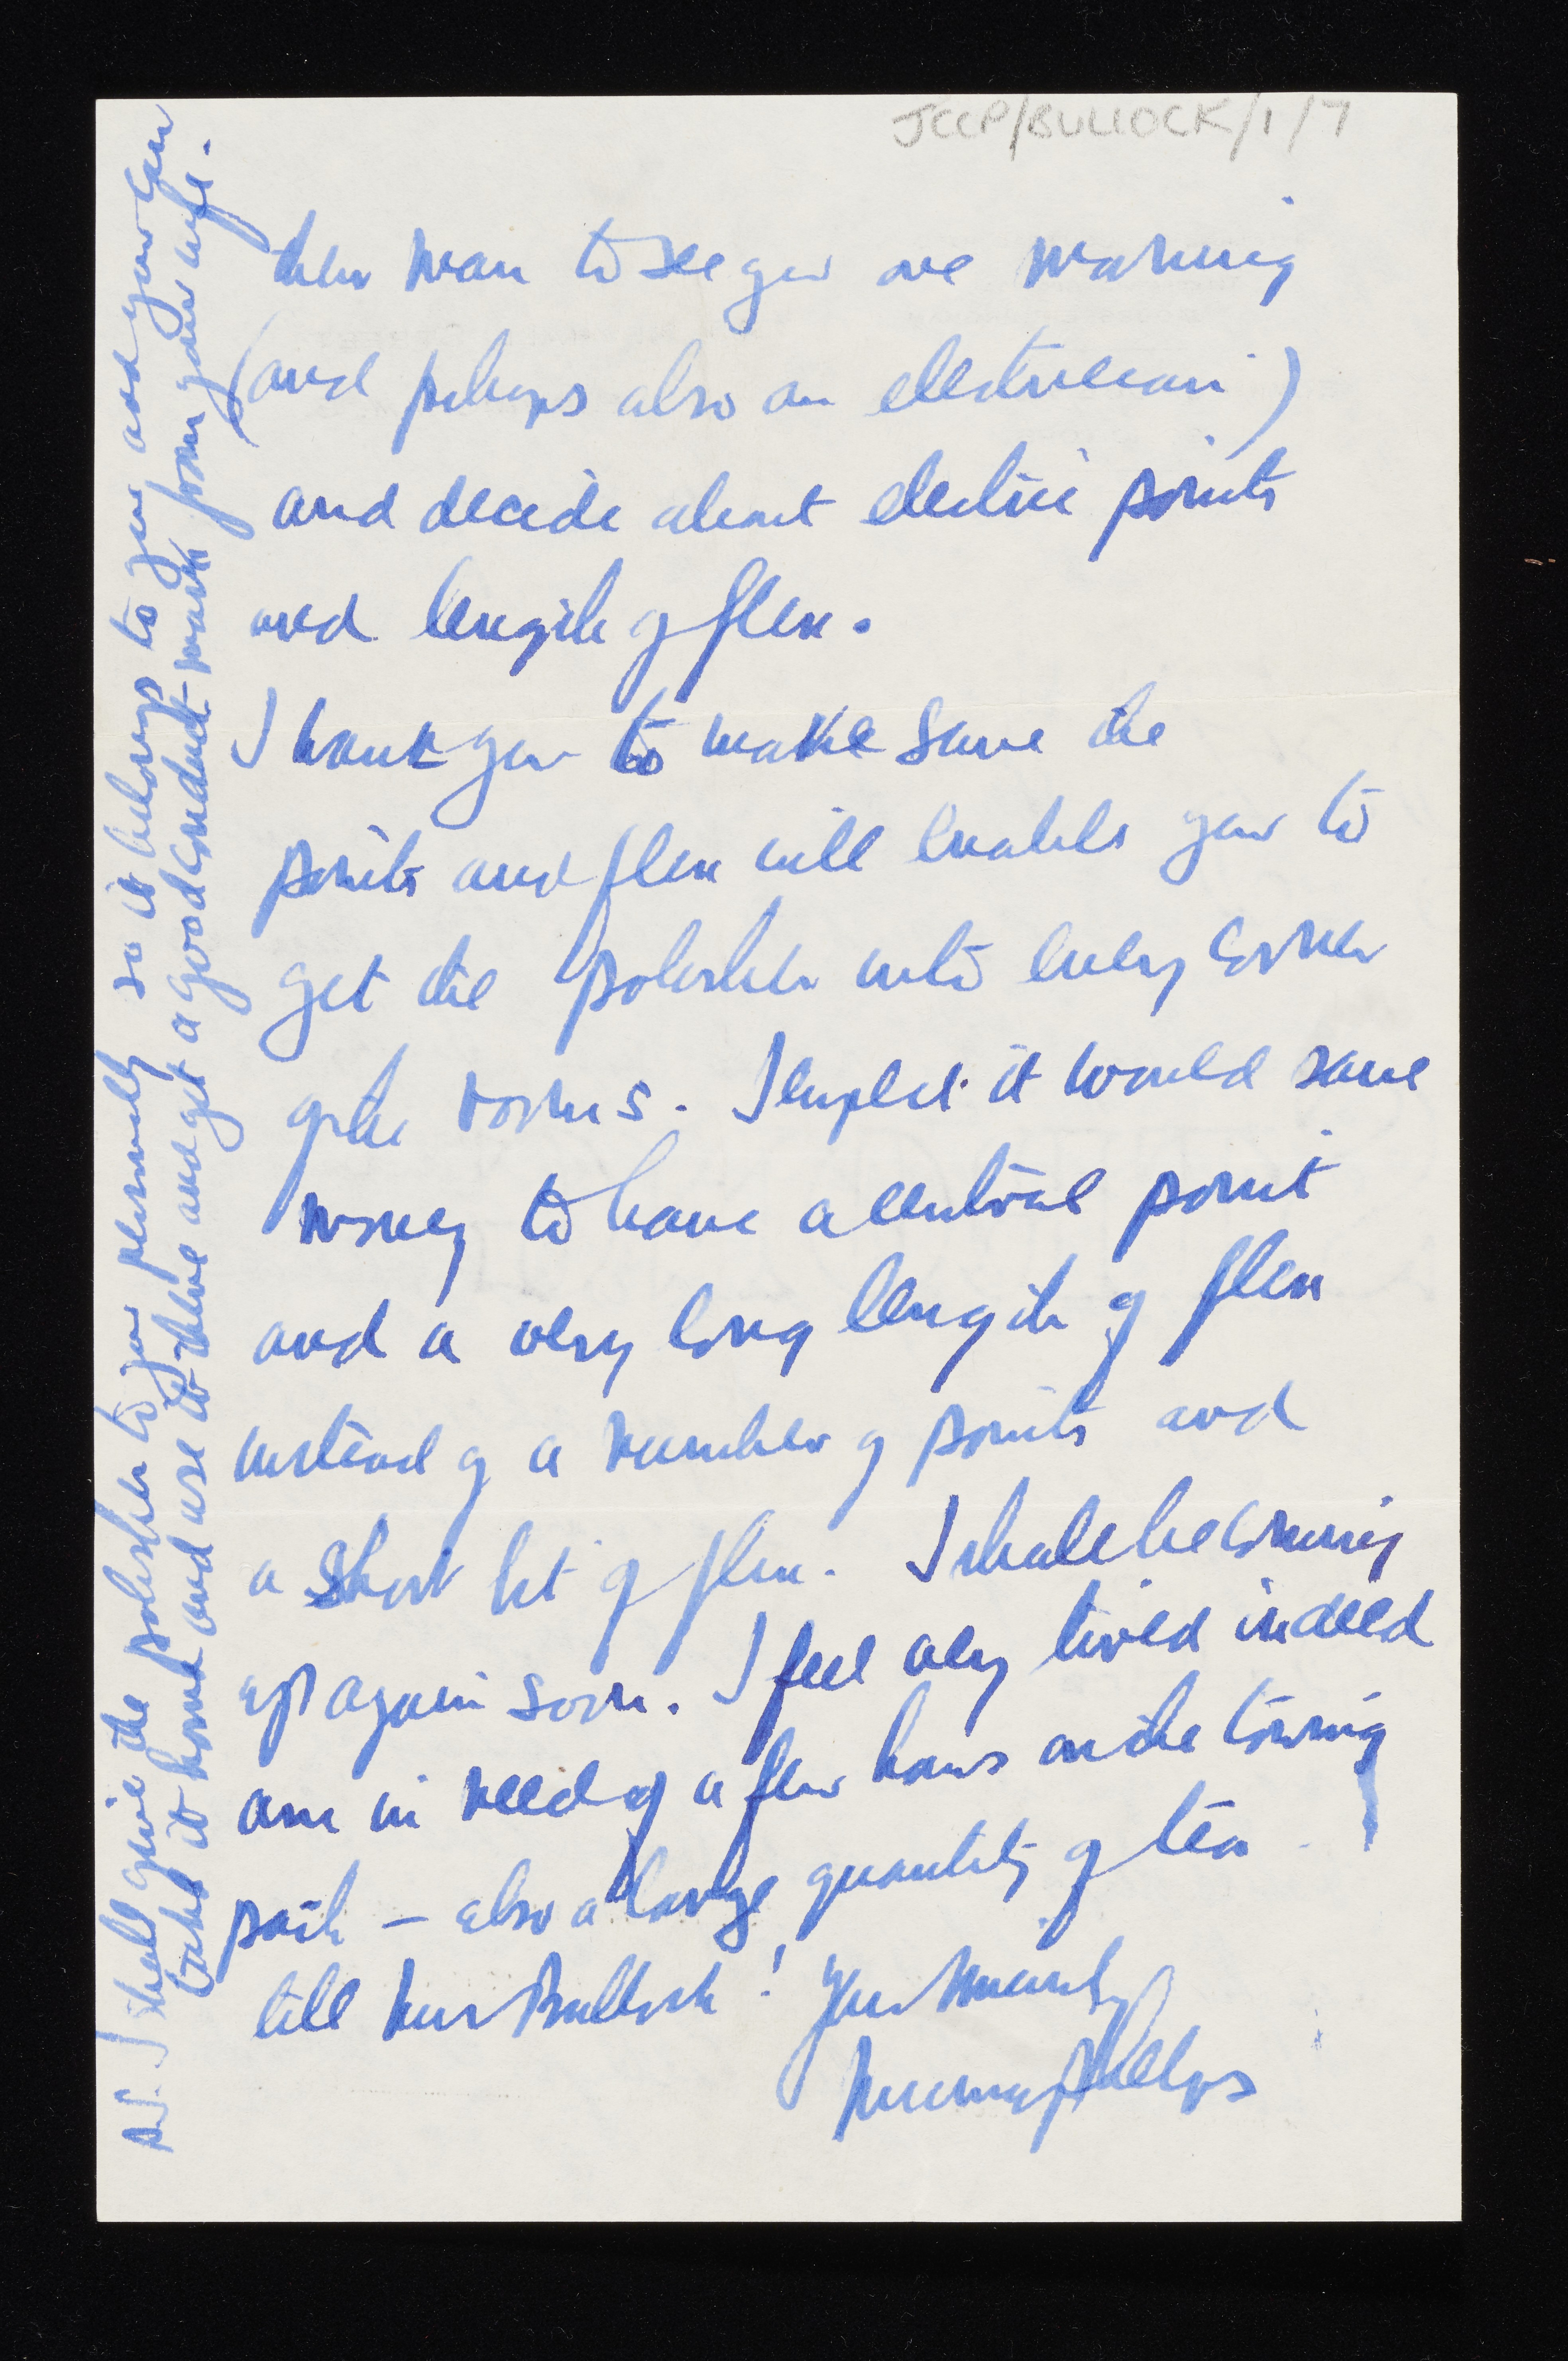 JCCP/BULLOCK/1/7
their man to see you one morning
(and perhaps also an electrician)
and decide about electric points
and length of flex.
I want you to make sure the
points and flex will enable you to
get the polisher into every corner
of the rooms. I expect it would save
money to have a central point
and a very long length of flex
instead of a number of points and
a short bit of flex. I shall be coming
up again soon. I feel very tired indeed
am in need of a few hours on the towing
path – also a large quantity of tea
tell Mrs Bullock! Yours sincerely
Phelps
P.S. I shall give the polisher to you personally so it belongs to you and you can
take it home and use it there and get a good conduct-mark from your wife.